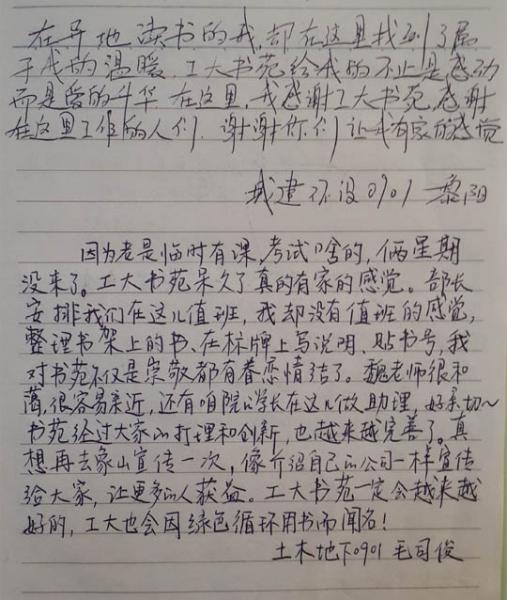 在异地读书的我,却在这里找到了属
于我的温暖。工大书苑给我的不止是感动
而是爱的升华。在这里,我感谢工大书苑,感谢
在这里工作的人们。谢谢你们让我有家的感觉
城建环设0901 黎阳
因为老是临时有课,考试啥的,俩星期
没来了。工大书苑呆久了真的有家的感觉。部长
安排我们在这儿值班,我却没有值班的感觉,
整理书架上的书、在标牌上写说明、贴书号,我
对书苑不仅是崇敬都有眷恋情结了。魏老师很和
蔼,很容易亲近,还有咱院的学长在这儿做助理,好亲切~
书苑经过大家的打理和创新,也越来越完善了。真
想再去象山宣传一次,像介绍自己的公司一样宣传
给大家,让更多的人获益。工大书苑一定会越来越
好的,工大也会因绿色循环用书而闻名!
土木地下0901 毛司俊